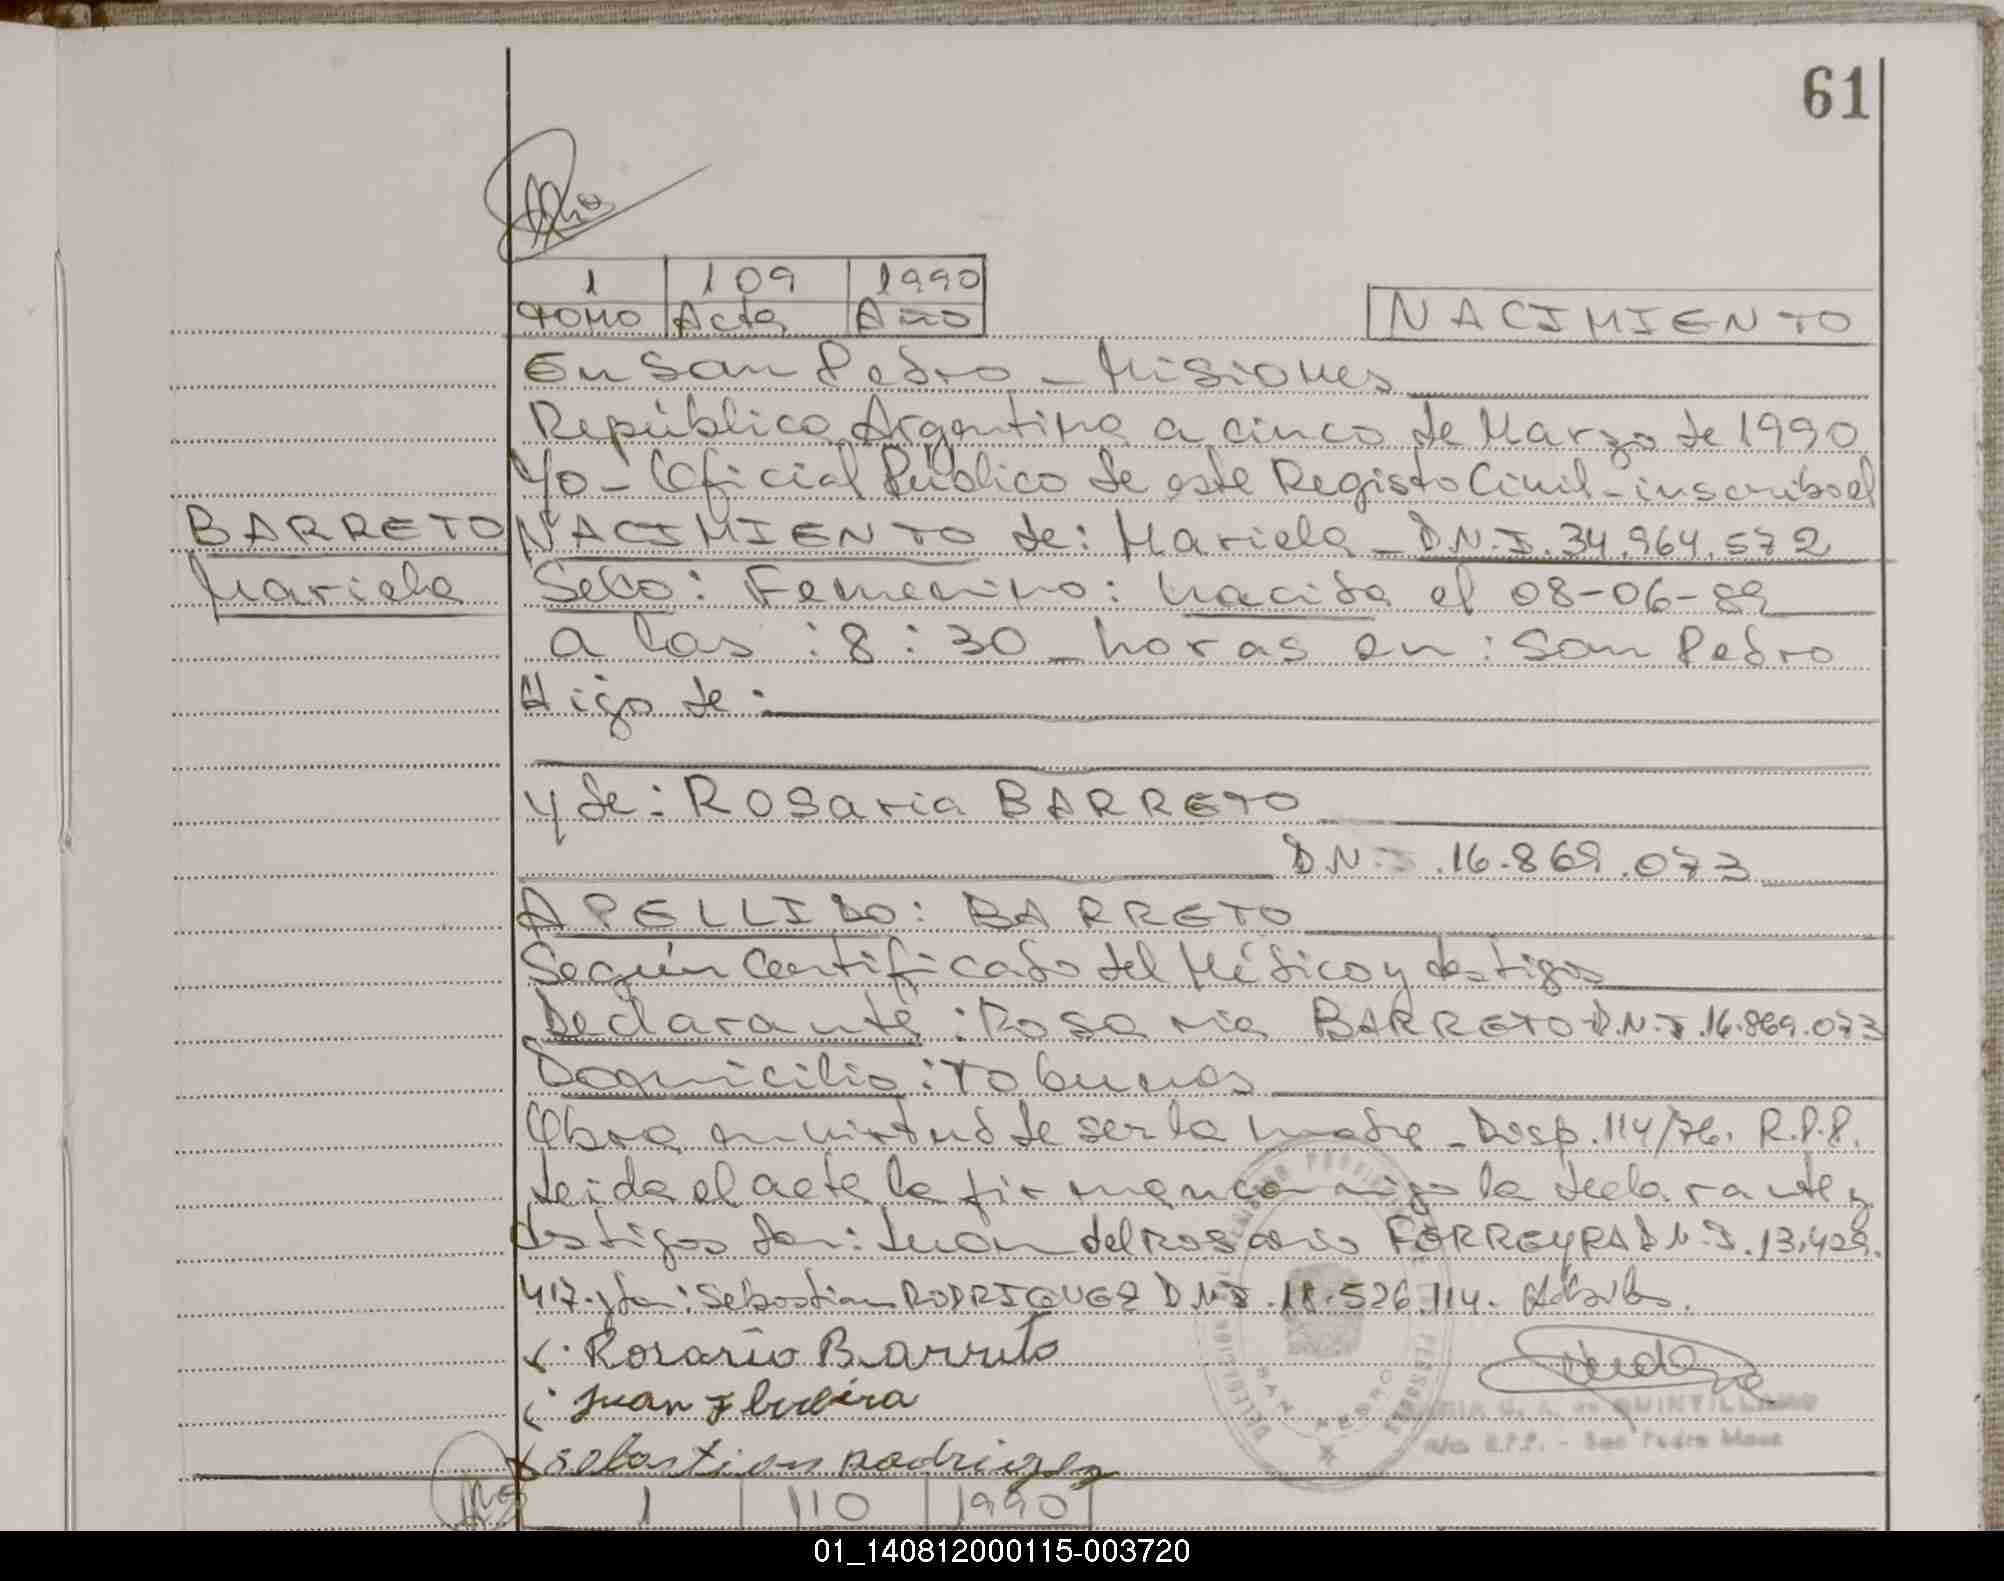 61
1 109 1990
TOMO Acta Año
NACIMIENTO
En San Pedro - Misiones
República Argentina a cinco de Marzo de 1990
Yo - Oficial Público de este Registo Civil - inscribo el
BARRETO NACIMIENTO de: Mariela - D.N.I. 34.964.572
Mariela Sexo: Femenino: nacida el 08-06-89
a las : 8 : 30 horas en : San Pedro
Hijo de :
y de : Rosaria BARRETO
D.N.I. 16.869.073
APELLIDO: BARRETO
Según Certificado del Médico y testigos
Declarante : Rosaria BARRETO D.N.I. 16.869.073
Domicilio : Tobunas
Obra en virtud de ser la madre - Disp. 114/76. R.P.P.
Leida el acta la firman conmigo la declarante y
testigos Don: Juan del Rosario FERREYRA D.N.I. 13.429.
417. y Don: Sebastian RODRIGUEZ D.N.I. 18.526.114.
Rosario Barreto
Juan
sebastian rodriguez
QUINTILLANO
R.P.P. - San Pedro Mnes
SAN PEDRO
1 110 1990
01_140812000115-003720